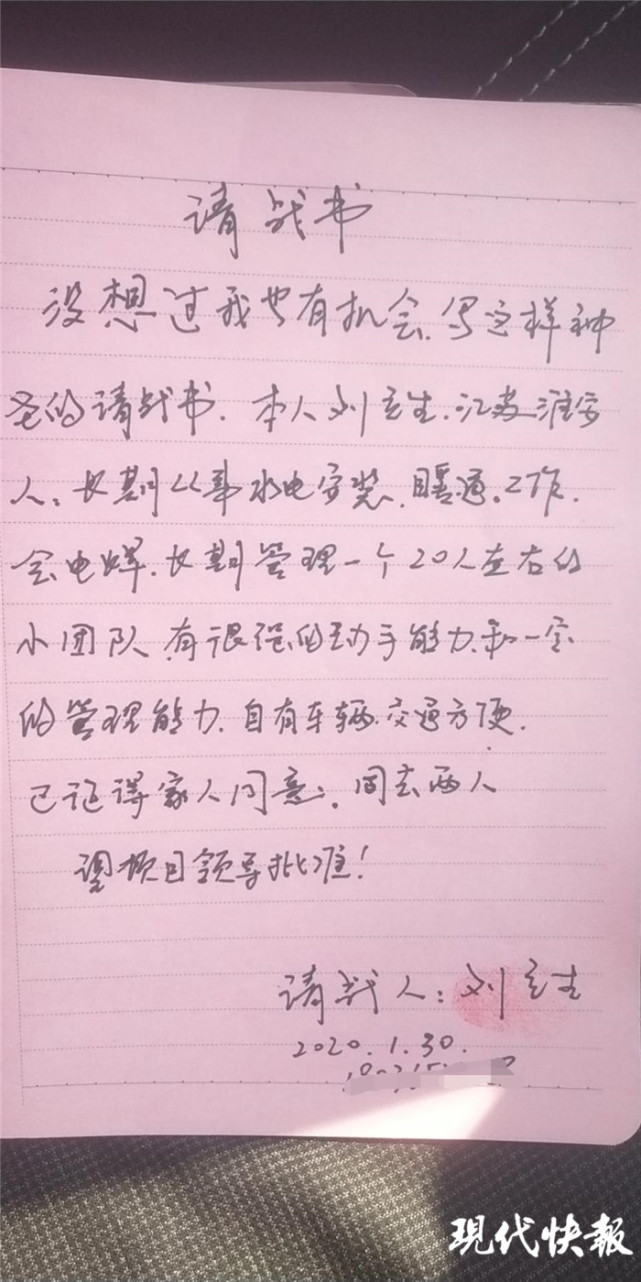 请战书
没想过我也有机会.写这样神
圣的请战书.本人刘立生.江苏淮安
人.长期从事水电安装.暖通.工作.
会电焊.长期管理一个20人左右的
小团队.有很强的动手能力和一定
的管理能力.自有车辆.交通方便.
已征得家人同意.同去两人
望项目领导批准!
请战人:刘立生
2020.1.30.
现代快報